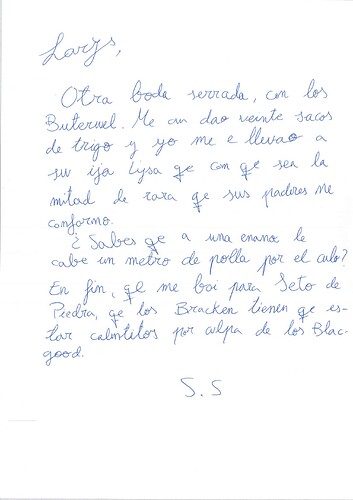 Larys,
Otra boda serrada, con los
Buterwel. Me an dao veinte sacos
de trigo y yo me e llevao a
su ija Lysa qe con qe sea la
mitad de rara qe sus padres me
conformo.
¿Sabes qe a una enana le
cabe un metro de polla por el culo?
En fin, qe me boi para Seto de
Piedra, qe los Bracken tienen qe es-
tar calentitos por culpa de los Blac-
good.
S.S